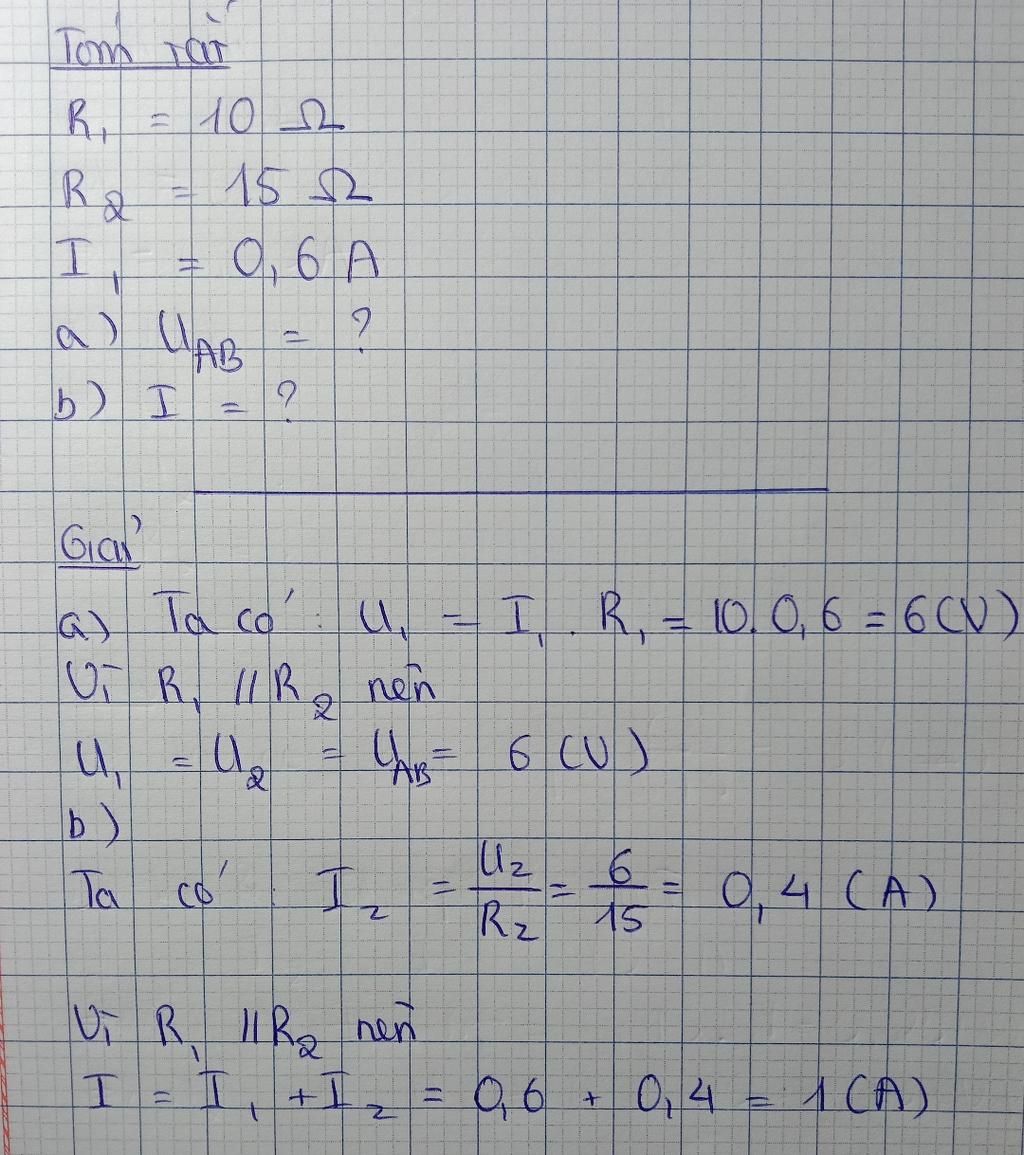 Tóm tắt
R₁ = 10 Ω
R₂ = 15 Ω
I₁ = 0,6 A
a) U_AB = ?
b) I = ?
Giải
a) Ta có: U₁ = I₁ . R₁ = 10.0,6 = 6(V)
Vì R₁ // R₂ nên
U₁ = U₂ = U_AB = 6 (V)
b)
Ta có : I₂ = U₂/R₂ = 6/15 = 0,4 (A)
Vì R₁ // R₂ nên
I = I₁ + I₂ = 0,6 + 0,4 = 1(A)